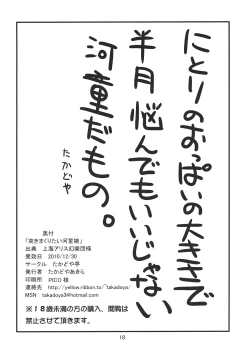 にとりのおっぱいの大きさで
半月悩んでもいいじゃない
河童だもの。
たかどや
奥付
「突きまくりたい河童娘」
出典 上海アリス幻楽団様
発効日 2010/12/30
サークル たかどや亭
発行者 たかどやあきら
印刷所 PICO 様
連絡先 http://yellow.ribbon.to/~takadoya/
MSN takadoya3@hotmail.com
※18歳未満の方の購入、閲覧は
禁止させて頂きます。
18